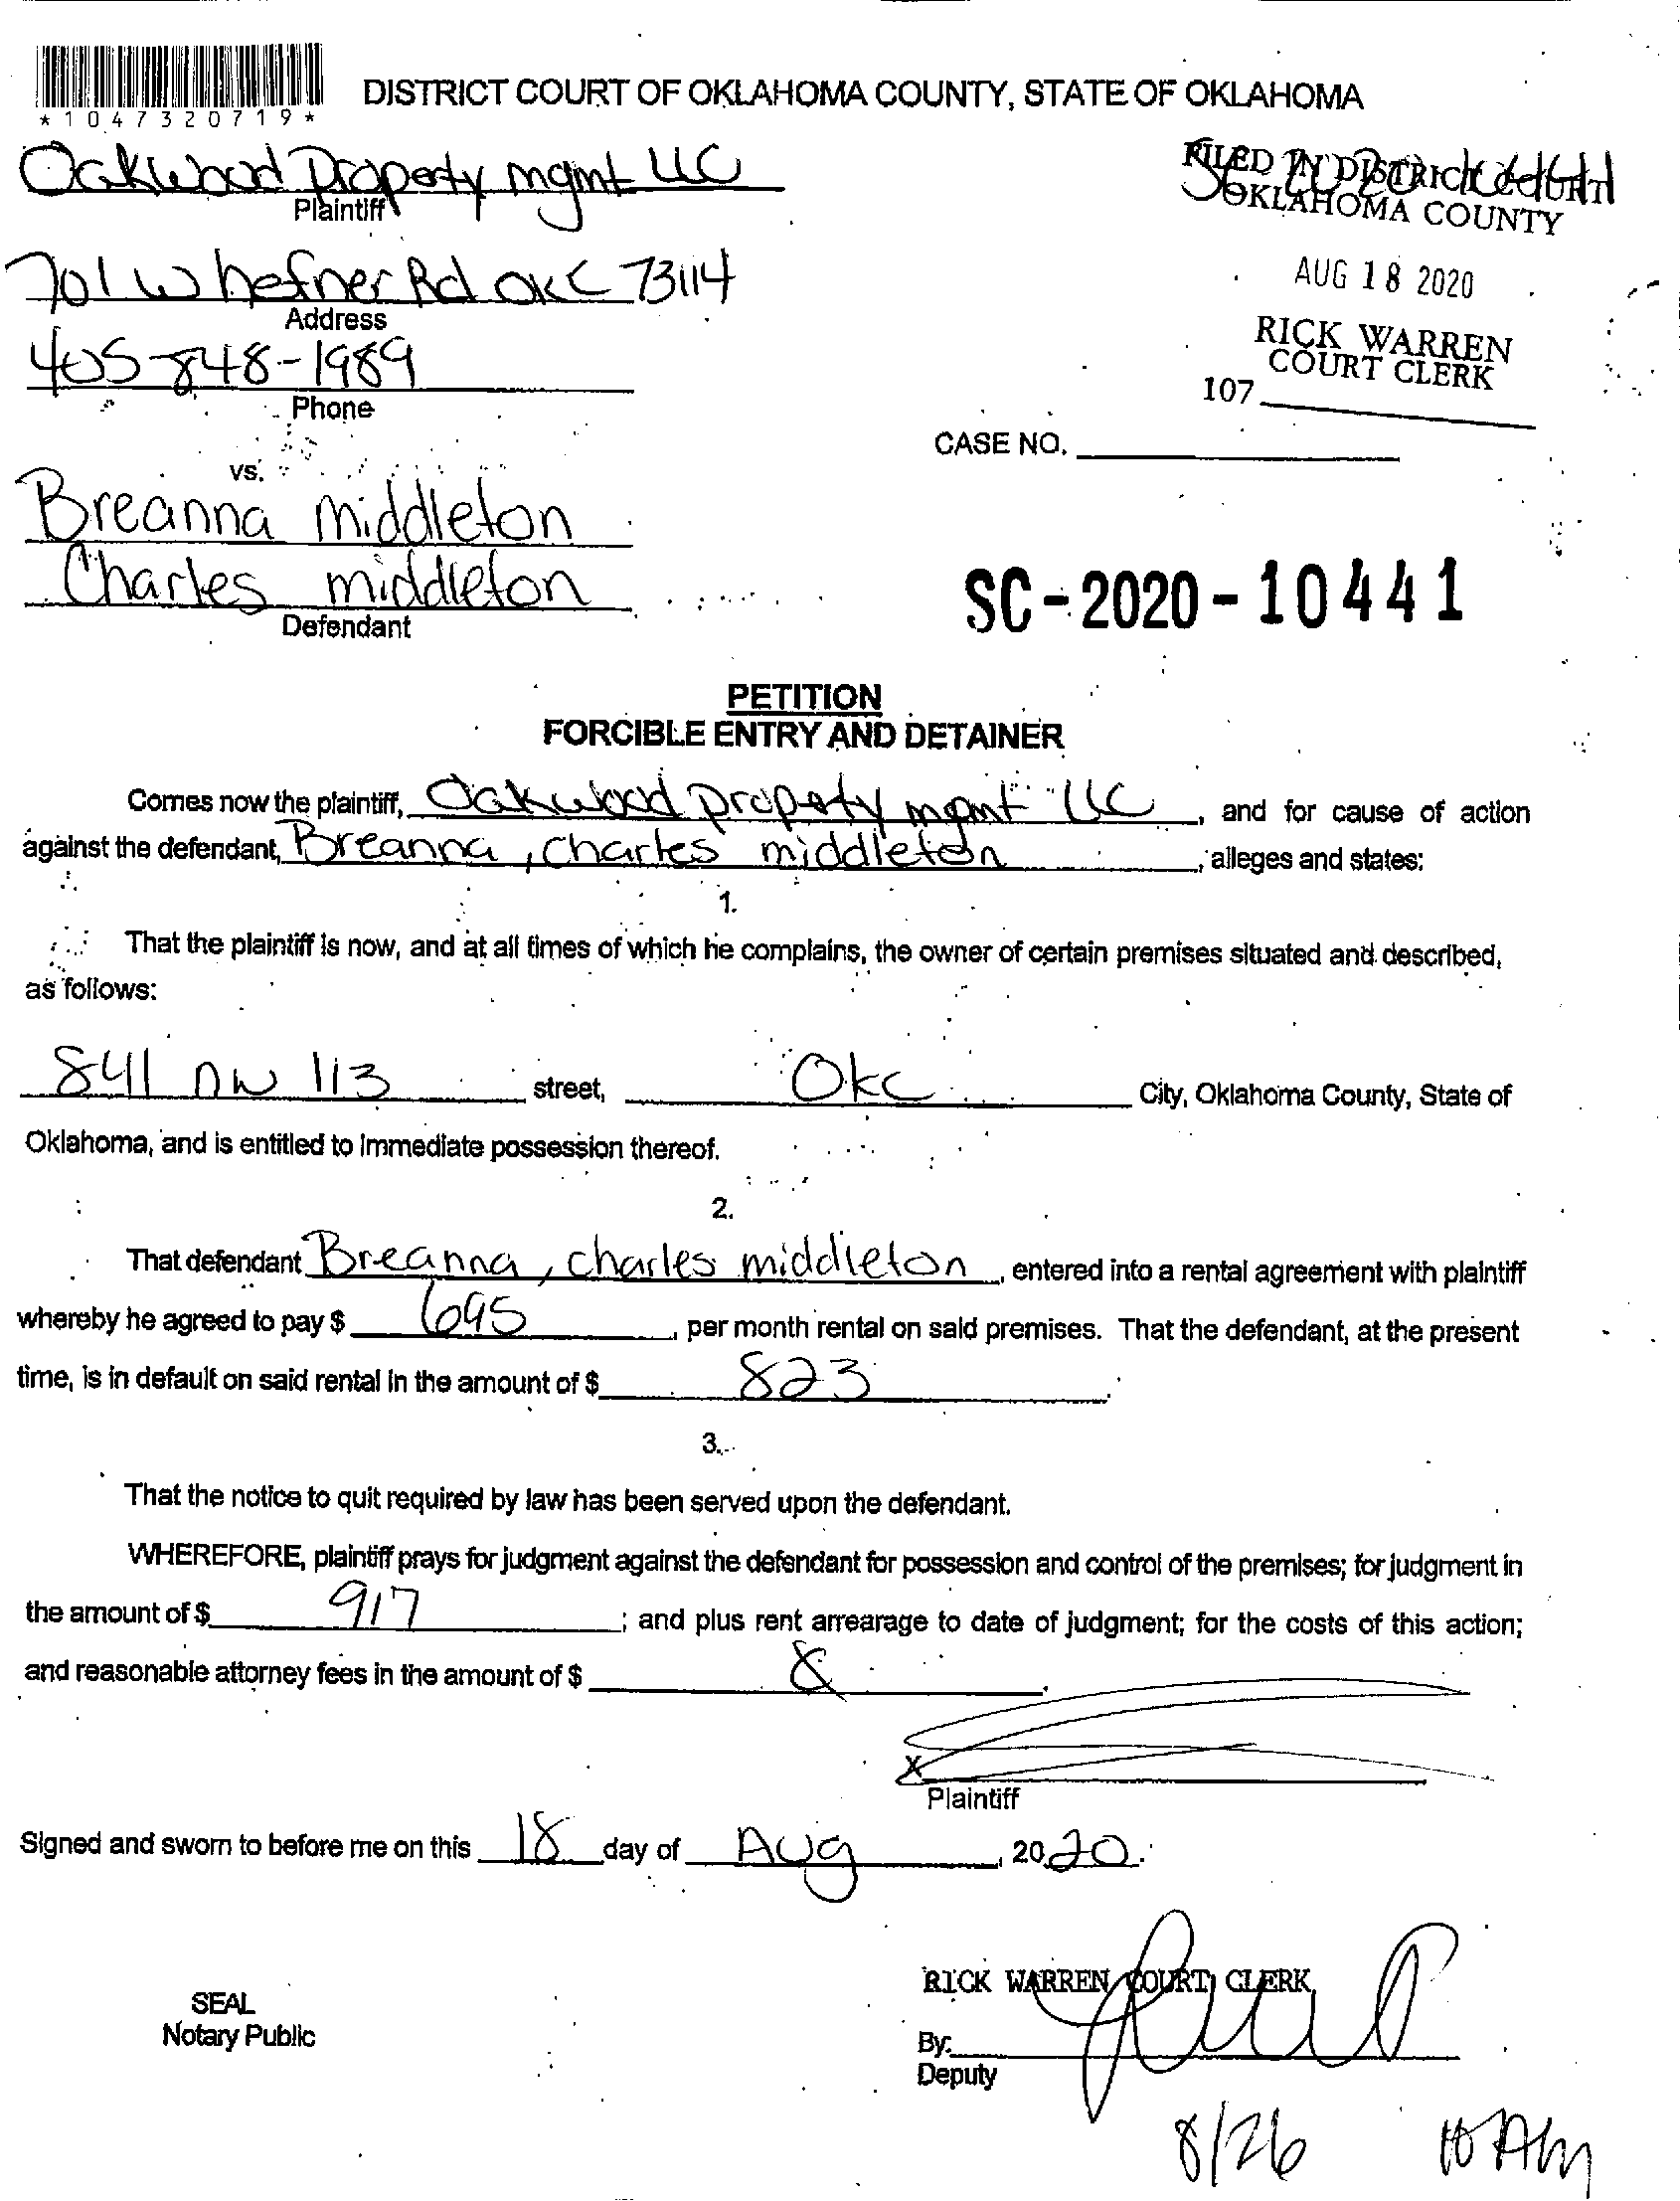 *1047320719*
DISTRICT COURT OF OKLAHOMA COUNTY, STATE OF OKLAHOMA
Oakwood Property mgmt LLC
Plaintiff
FILED IN DISTRICT COURT
OKLAHOMA COUNTY
701 W hefner Rd OKC 73114
Address
AUG 18 2020
405-848-1989
Phone
RICK WARREN
COURT CLERK
107
CASE NO.
vs.
Breanna middleton
Charles middleton
Defendant
SC-2020-10441
PETITION
FORCIBLE ENTRY AND DETAINER
Comes now the plaintiff, Oakwood property mgmt LLC, and for cause of action
against the defendant, Breanna, Charles middleton, alleges and states:
1.
That the plaintiff is now, and at all times of which he complains, the owner of certain premises situated and described,
as follows:
841 NW 113 street, OKC City, Oklahoma County, State of
Oklahoma, and is entitled to immediate possession thereof.
2.
That defendant Breanna, charles middleton, entered into a rental agreement with plaintiff
whereby he agreed to pay $ 695, per month rental on said premises. That the defendant, at the present
time, is in default on said rental in the amount of $ 823.
3.
That the notice to quit required by law has been served upon the defendant.
WHEREFORE, plaintiff prays for judgment against the defendant for possession and control of the premises; for judgment in
the amount of $ 917; and plus rent arrearage to date of judgment; for the costs of this action;
and reasonable attorney fees in the amount of $
X
Plaintiff
Signed and sworn to before me on this 18 day of Aug, 2020.
RICK WARREN COURT CLERK
SEAL
Notary Public
By:
Deputy
8/26 10 AM